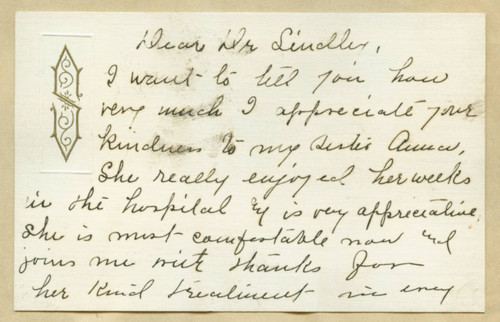 Dear Dr Lindley,
I want to tell you how
very much I appreciate your
kindness to my sister Anna,
She really enjoyed her weeks
in the hospital & is very appreciative
She is most comfortable now and
joins me with thanks for
her kind treatment in every